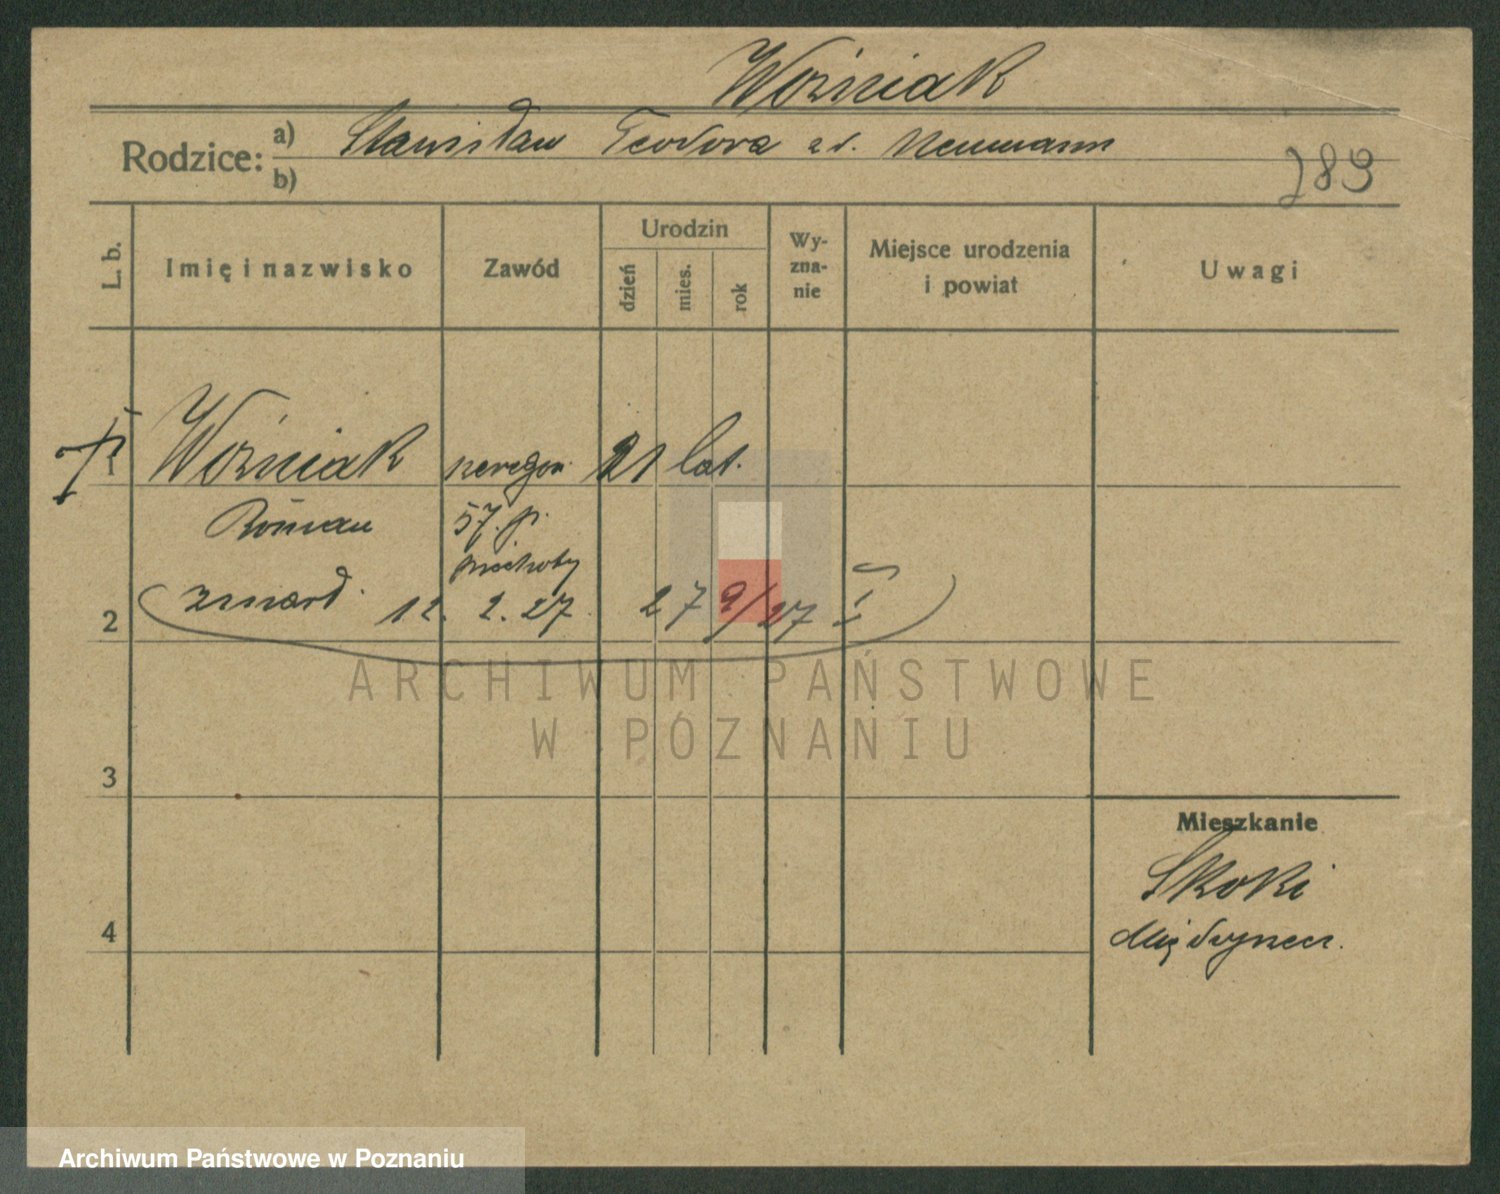 Woźniak
Rodzice: a) Stanisław Teodora z d. Neumann
b)
789
L. b.
Imię i nazwisko
Zawód
Urodzin
dzień
mies.
rok
Wy-
zna-
nie
Miejsce urodzenia
i powiat
Uwagi
1
Woźniak
21 lat.
Roman
57. p.
piechoty
zmarł 12. 2. 27 27 2/27
2
ARCHIWUM PAŃSTWOWE
W POZNANIU
3
Mieszkanie
Skoki
4
Archiwum Państwowe w Poznaniu